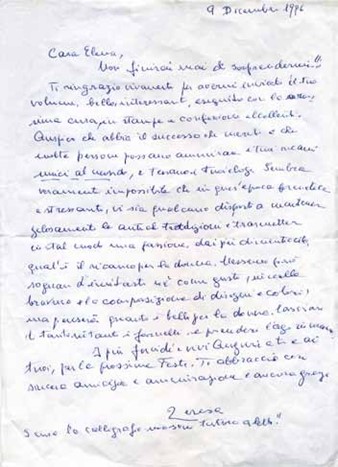 9 Dicembre 1996
Cara Elena,
Non finirai mai di sorprendermi!!
Ti ringrazio vivamente per avermi inviato il tuo
volume, bello, interessante, eseguito con
una stampa e confezione eccellenti.
Auspico che abbia il successo che meriti e che
molte persone possano ammirare i tuoi ricami
unici al mondo, e Sembra
veramente impossibile che in quest'epoca frenetica
e stressante, vi sia qualcuno disposto a mantenere
gelosamente le antiche tradizioni e trasmettere
in tal modo una passione, dai più dimenticata,
qual'è il ricamo per la donna. Nessuno può
sognarsi d'imitarti nè come gusto, nè nella
bravura e la composizione di disegni e colori,
ma penserà quanto è bello per la donna, lasciare
i fornelli e prendere l'ago in mano.
I più fervidi e vivi Auguri a te e ai
tuoi, per le prossime Feste. Ti abbraccio con
sincera amicizia e ammirazione e ancora grazie
Teresa
la calligrafia